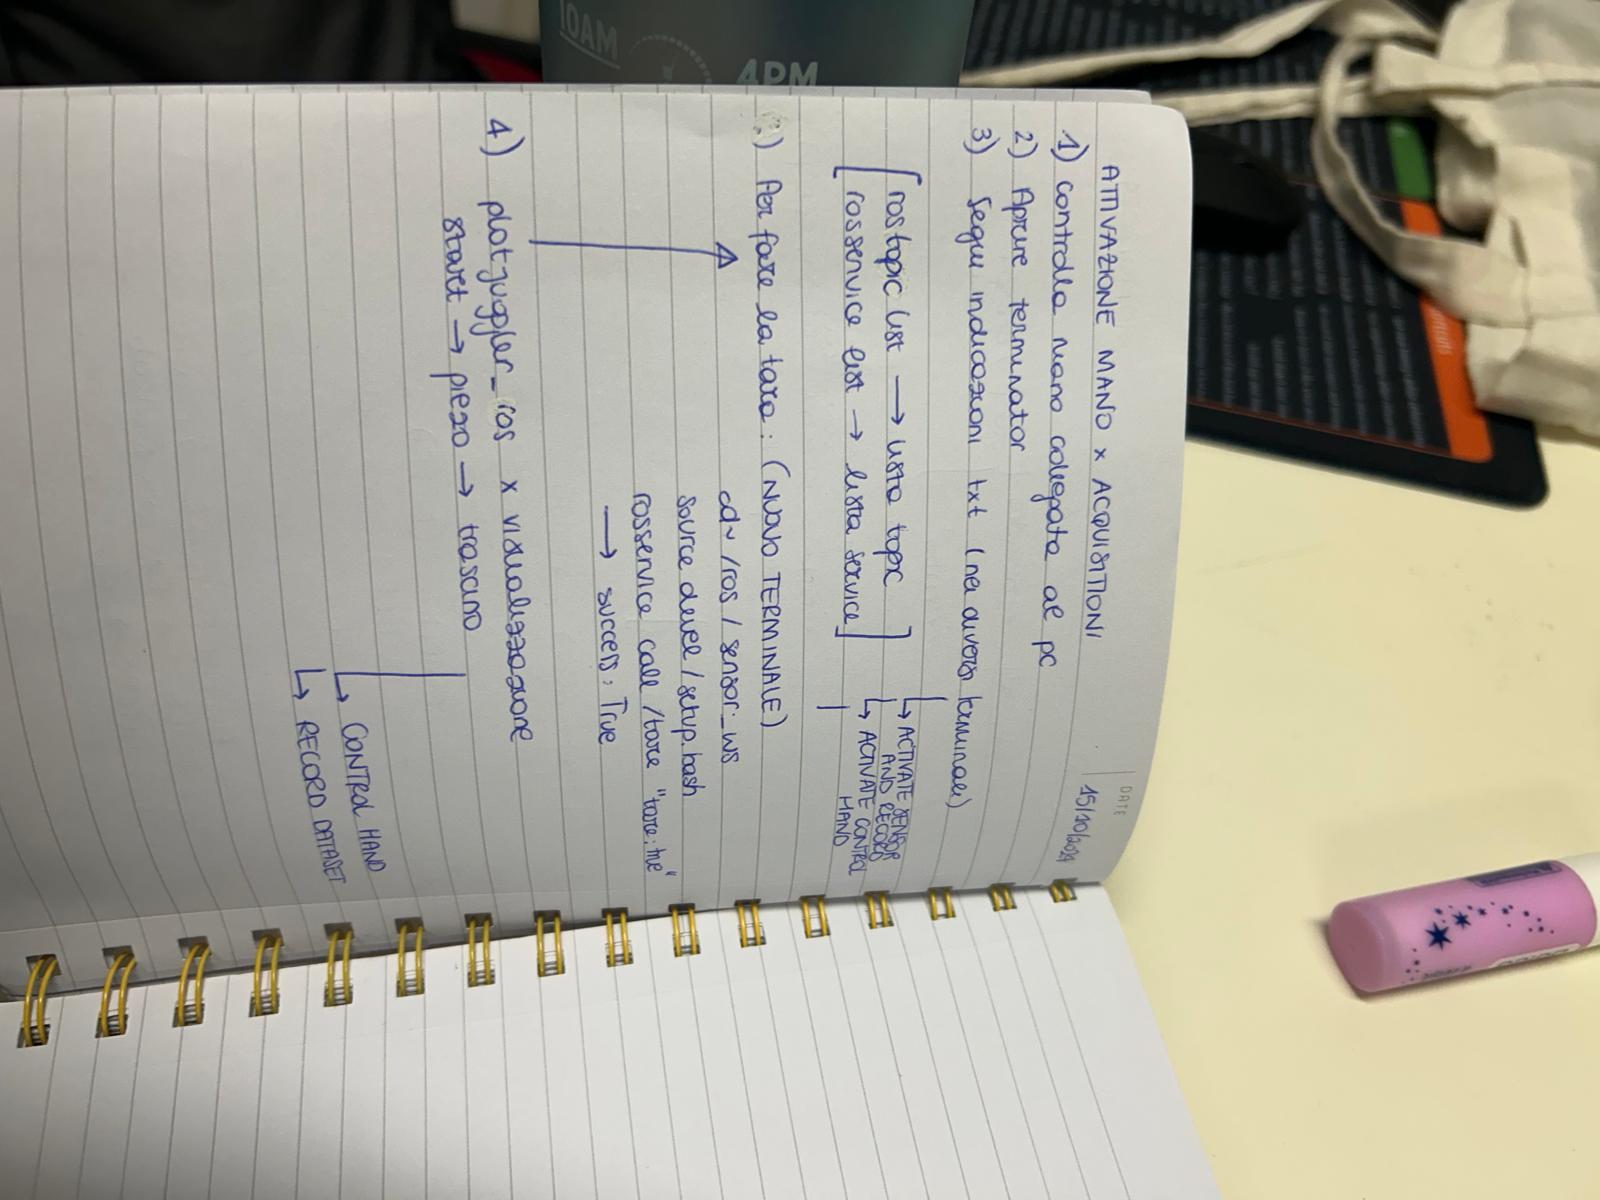 10AM
4PM
DATE
15/10/2024
ATTIVAZIONE MANO x ACQUISITIONI
1) controlla mano collegata al pc
2) Aprire terminator
3) Segui indicazioni txt (nei diversi terminali)
↳ ACTIVATE SENSOR AND RECORD
↳ ACTIVATE CONTROL HAND
[ros topic list → lista topic
rosservice list → lista service]
) Per fare la tara: (NUOVO TERMINALE)
cd~ /ros / sensor_ws
source devel / setup.bash
rosservice call /tare "tare: true"
→ success: True
4) plotjuggler_ros x visualizzazione
start → piezo → trascino
↳ CONTROL HAND
↳ RECORD DATASET